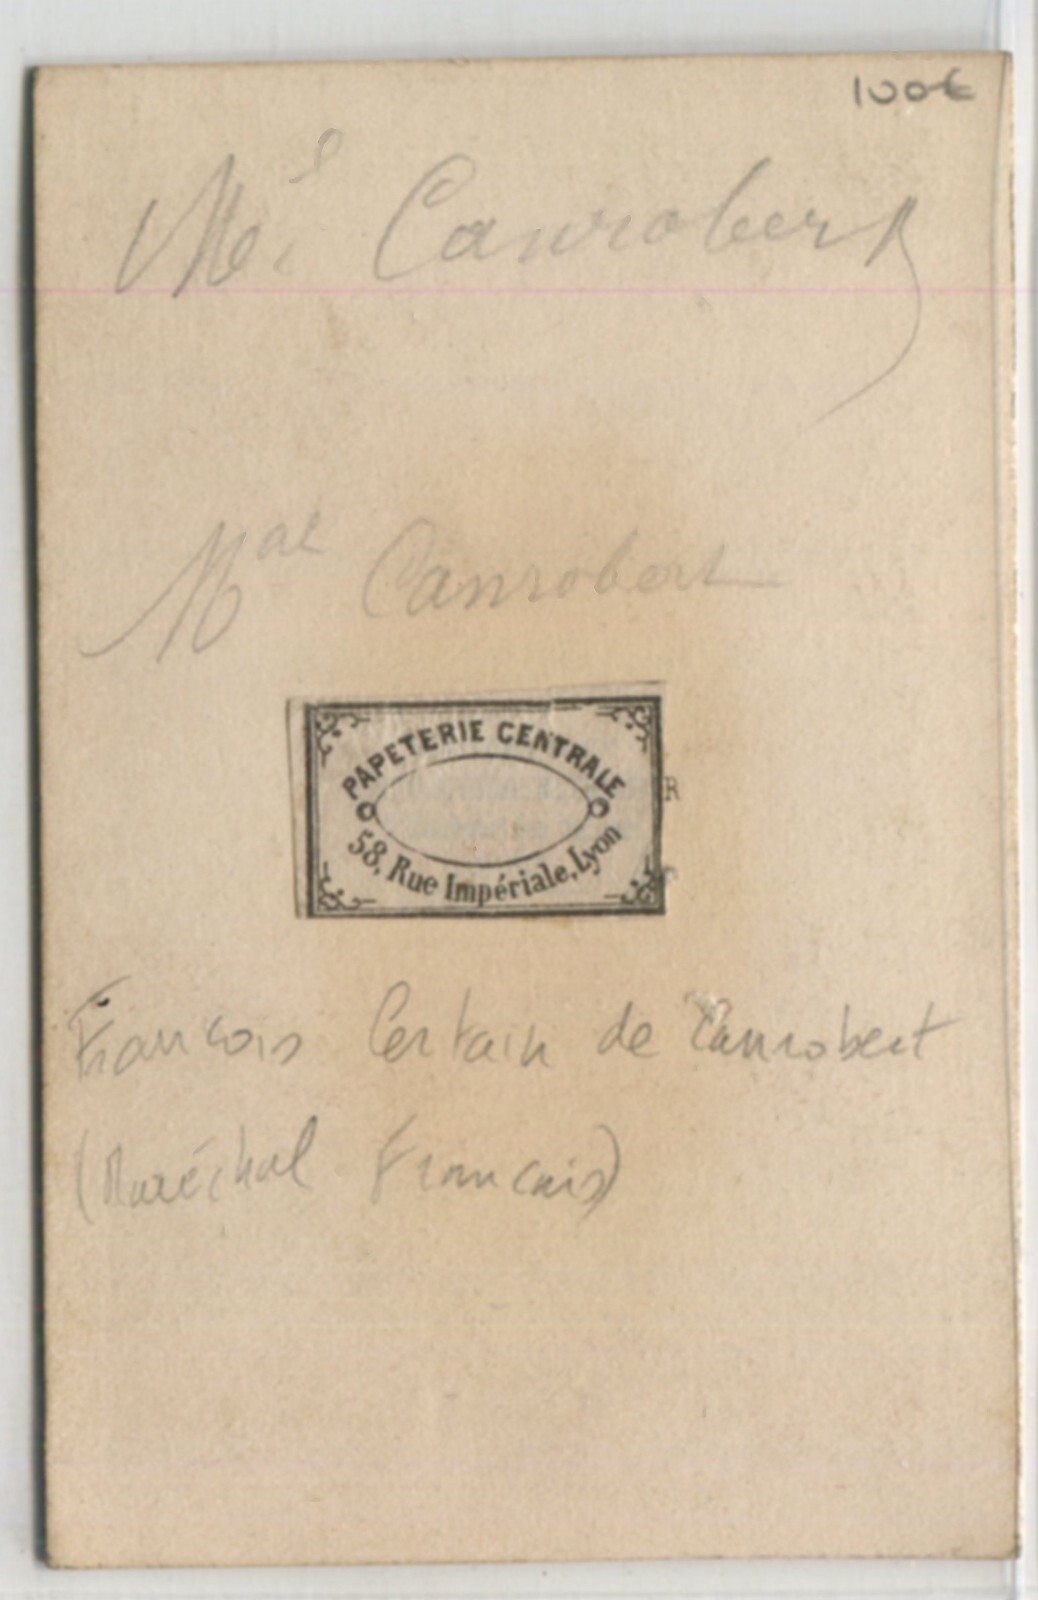 100€
Mal Canrobert
Mal Canrobert
PAPETERIE CENTRALE
58, Rue Impériale, Lyon
R
François Certain de Canrobert
(Maréchal Français)